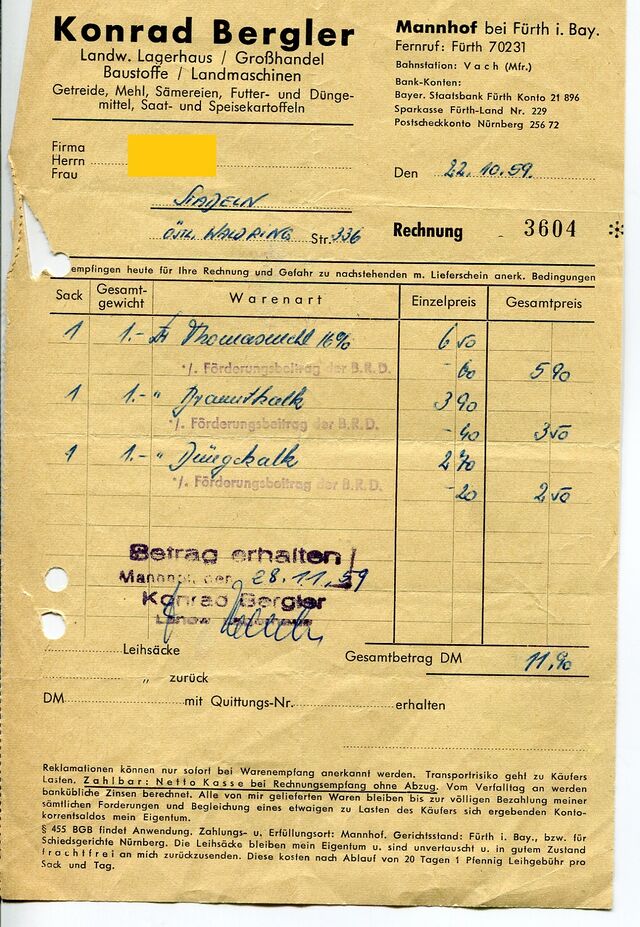 Konrad Bergler
Landw. Lagerhaus / Großhandel
Baustoffe / Landmaschinen
Getreide, Mehl, Sämereien, Futter- und Dünge-
mittel, Saat- und Speisekartoffeln
Mannhof bei Fürth i. Bay.
Fernruf: Fürth 70231
Bahnstation: Vach (Mfr.)
Bank-Konten:
Bayer. Staatsbank Fürth Konto 21 896
Sparkasse Fürth-Land Nr. 229
Postscheckkonto Nürnberg 256 72
Firma
Herrn
Frau
Den 22.10.59.
Stadeln
Östl. Waldring Str. 336
Rechnung 3604 *
empfingen heute für Ihre Rechnung und Gefahr zu nachstehenden m. Lieferschein anerk. Bedingungen
Sack Gesamt-gewicht Warenart Einzelpreis Gesamtpreis
1 1.- Thomasmehl 16% 6 50
·/. Förderungsbeitrag der B.R.D. -60 5 90
1 1.- " Branntkalk 3 90
·/. Förderungsbeitrag der B.R.D. -40 3 50
1 1.- " Düngekalk 2 70
·/. Förderungsbeitrag der B.R.D. -20 2 50
Betrag erhalten
Mannhof, den 28.11.59
Konrad Bergler
Leihsäcke
Gesamtbetrag DM 11,90
„ zurück
DM mit Quittungs-Nr. erhalten
Reklamationen können nur sofort bei Warenempfang anerkannt werden. Transportrisiko geht zu Käufers
Lasten. Zahlbar: Netto Kasse bei Rechnungsempfang ohne Abzug. Vom Verfalltag an werden
bankübliche Zinsen berechnet. Alle von mir gelieferten Waren bleiben bis zur völligen Bezahlung meiner
sämtlichen Forderungen und Begleichung eines etwaigen zu Lasten des Käufers sich ergebenden Konto-
korrentsaldos mein Eigentum.
§ 455 BGB findet Anwendung. Zahlungs- u. Erfüllungsort: Mannhof. Gerichtsstand: Fürth i. Bay., bzw. für
Schiedsgerichte Nürnberg. Die Leihsäcke bleiben mein Eigentum u. sind unvertauscht u. in gutem Zustand
frachtfrei an mich zurückzusenden. Diese kosten nach Ablauf von 20 Tagen 1 Pfennig Leihgebühr pro
Sack und Tag.